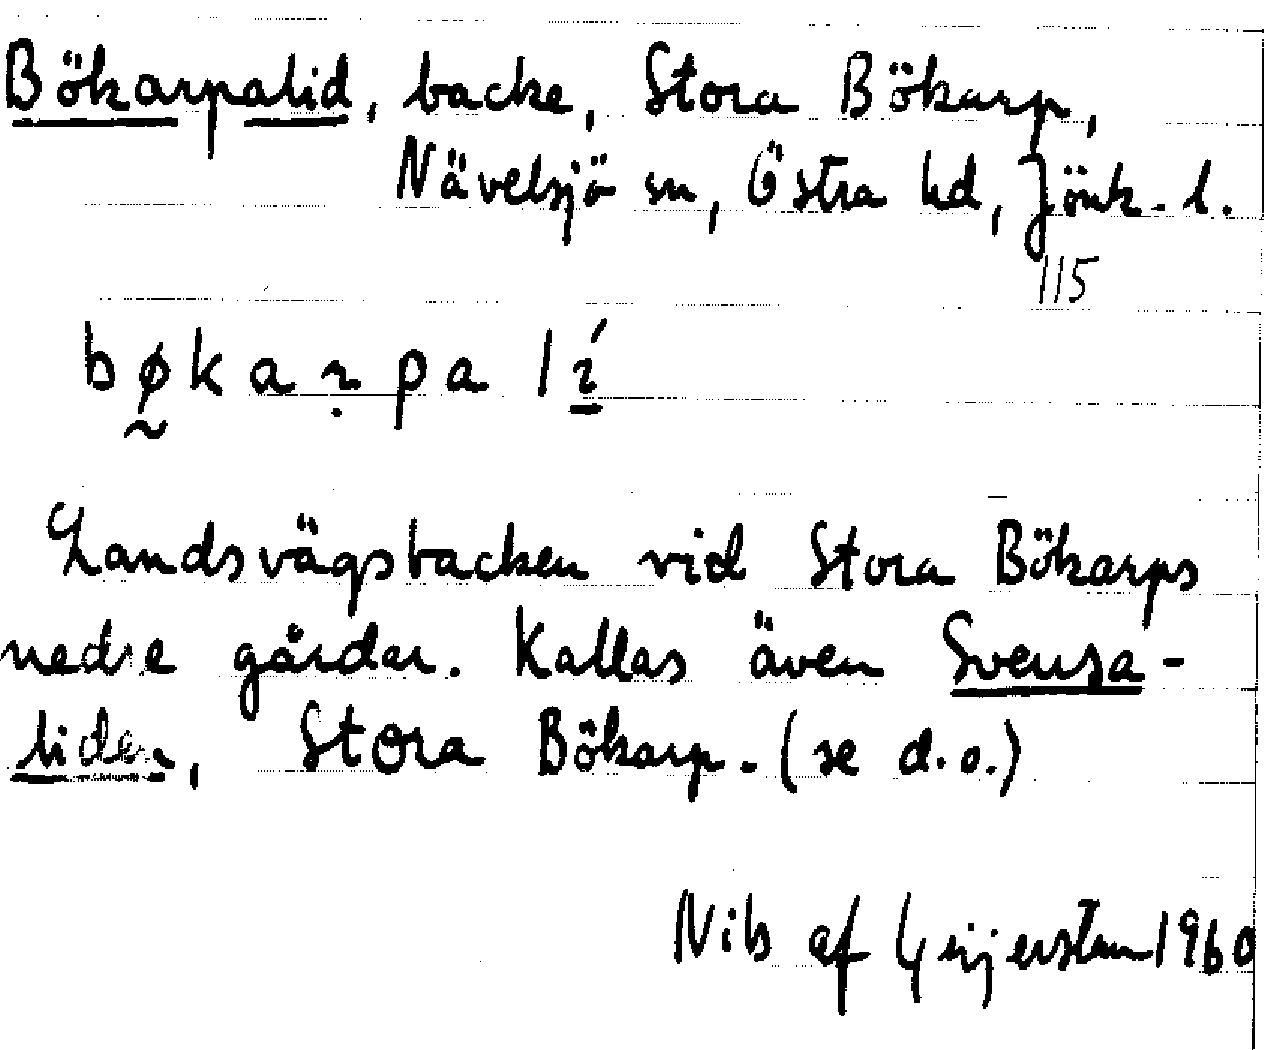 Bökarpalid, backe, Stora Bökarp,
Nävelsjö sn, Östra hd, Jönk. l.
115
bø̰kaɿ̣pa lí̲
Landsvägsbacken vid Stora Bökarps
nedre gårdar. Kallas även Svensa-
liden, Stora Bökarp. (se d.o.)
Nils af Geijerstam 1960